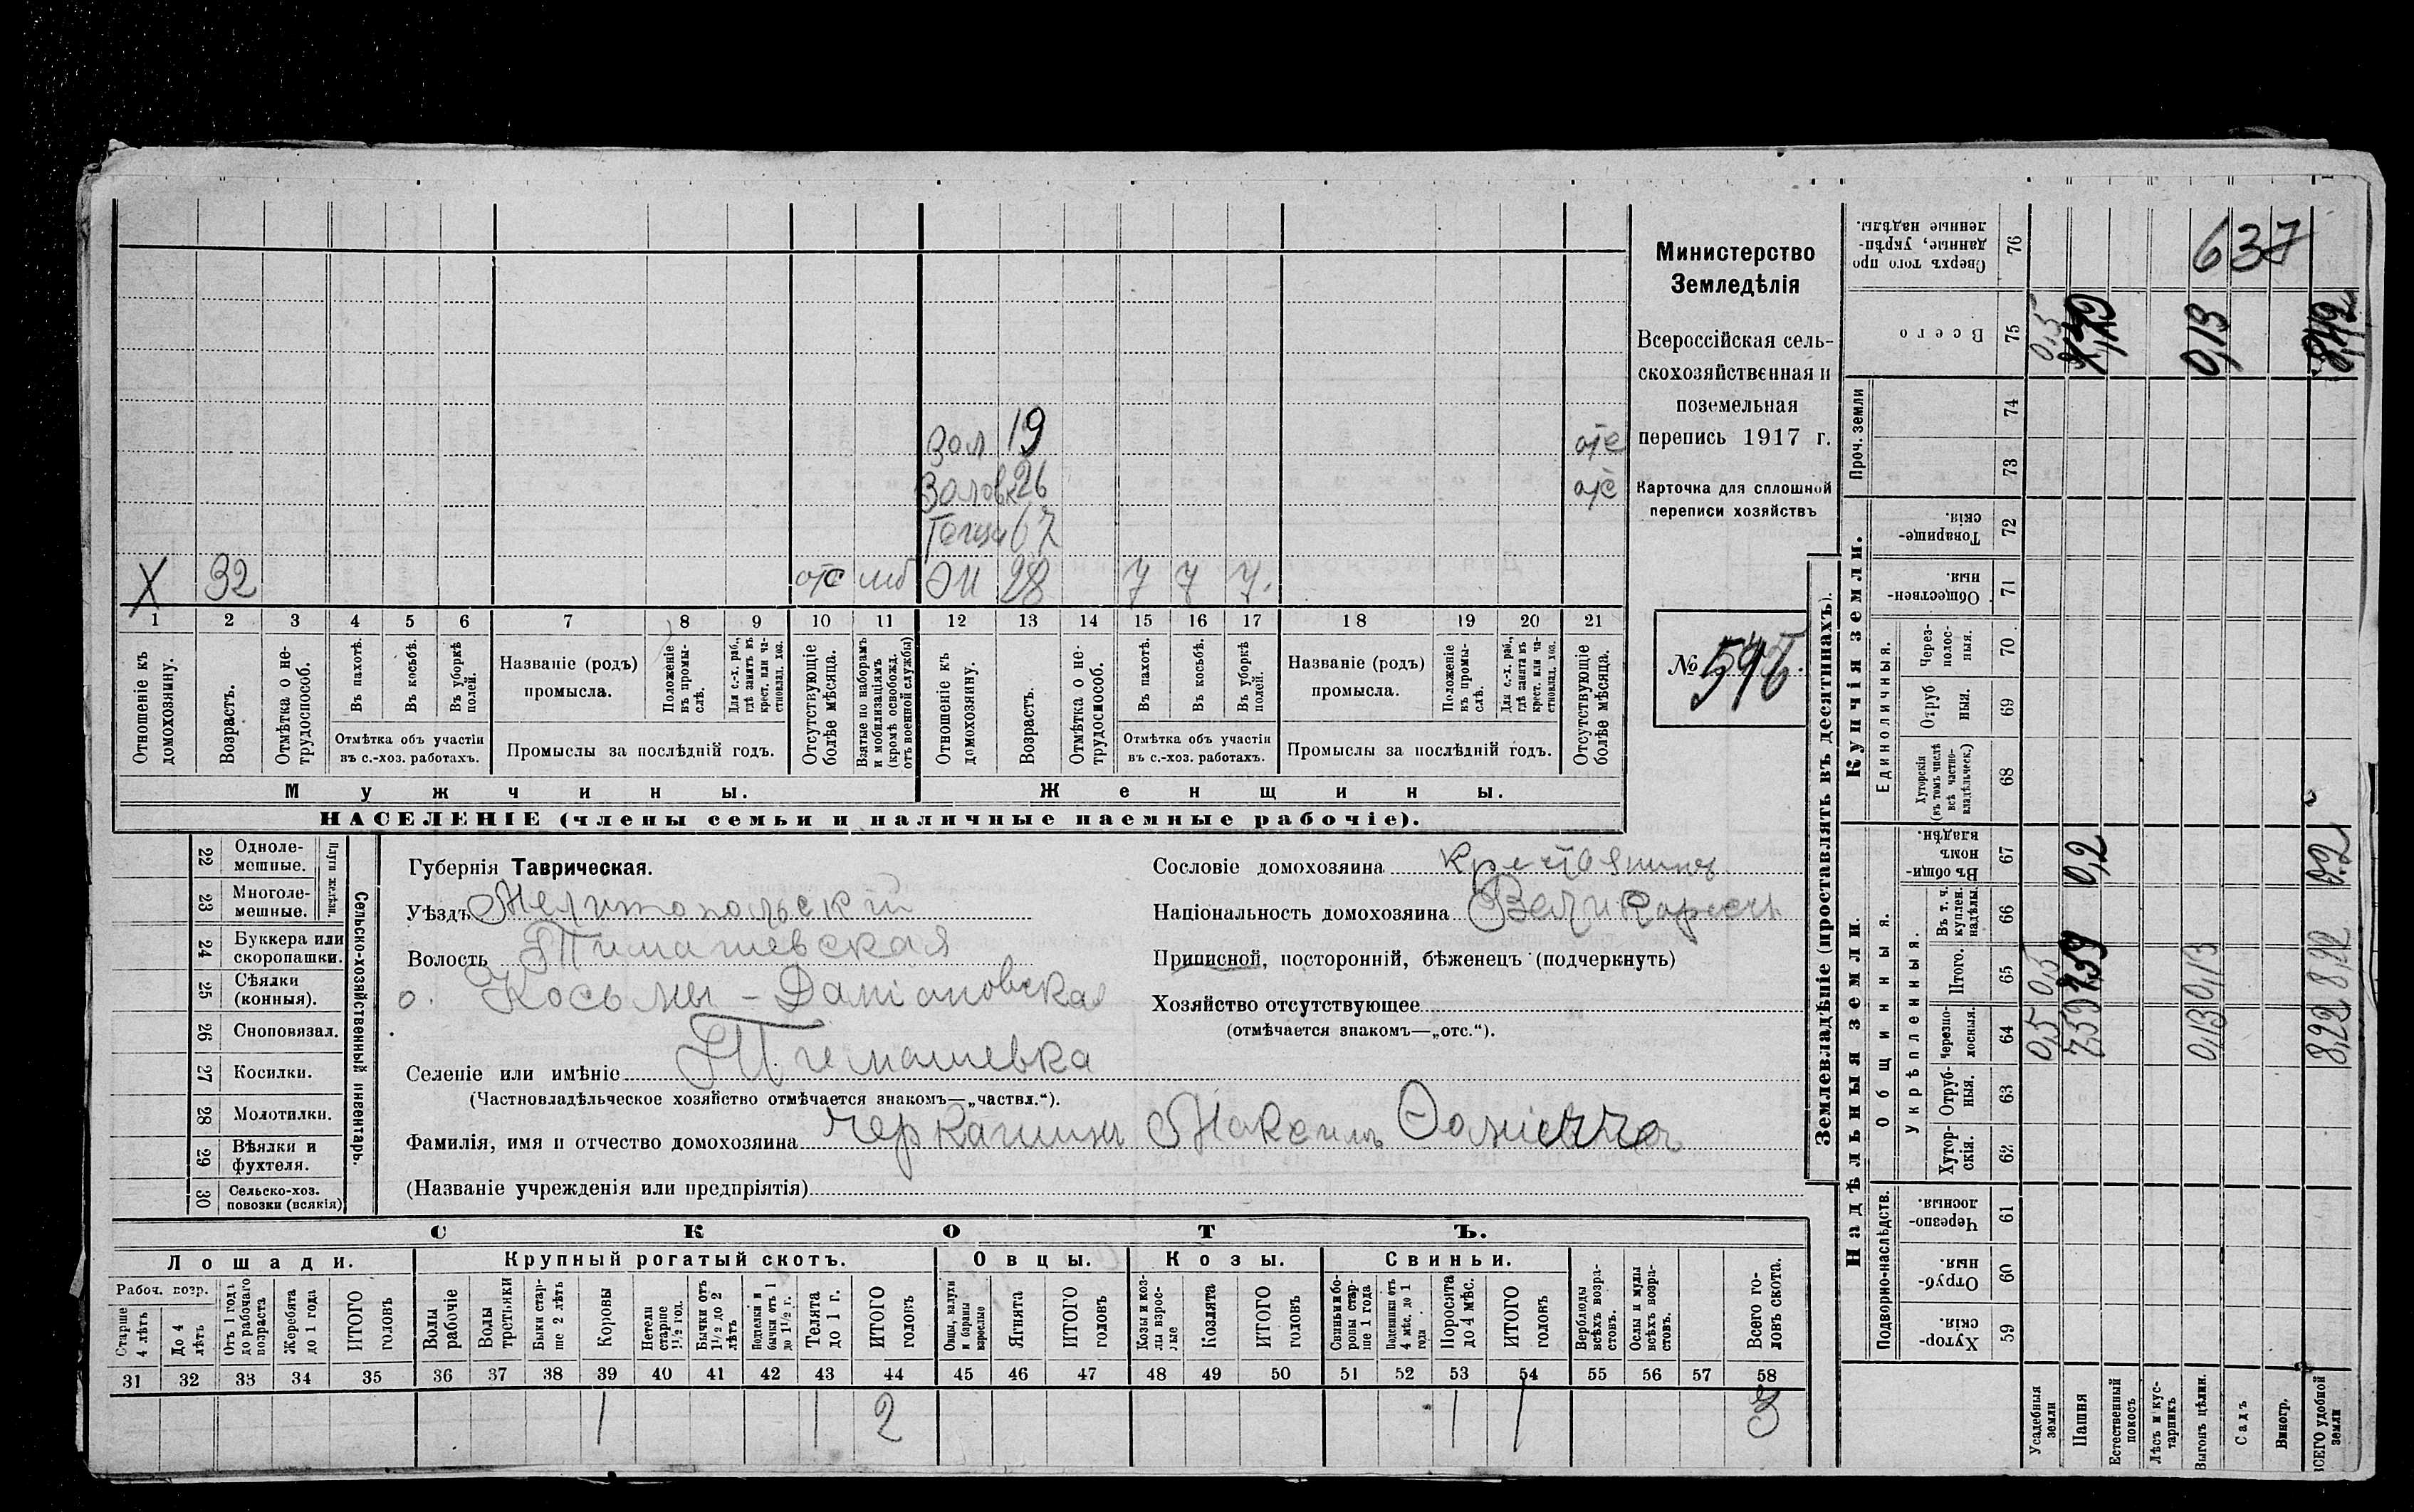 Вол 19 отс
Золовк 26 отс
Теща 67
X 32 отс моб Эи 28 7 7 7.
1 2 3 4 5 6 7 8 9 10 11 12 13 14 15 16 17 18 19 20 21
Отношеніе къ домохозяину.
Возрастъ.
Отмѣтка о нетрудоспособ.
Въ пахотѣ.
Въ косьбѣ.
Въ уборкѣ полей.
Отмѣтка объ участіи
въ с.-хоз. работахъ.
Названіе (родъ)
промысла.
Положеніе въ промыслѣ.
Для с.-х. раб., гдѣ занятъ въ крест. или частновлад. хоз.
Промыслы за послѣдній годъ.
Отсутствующіе болѣе мѣсяца.
Взятые по наборамъ и мобилизаціямъ (кромѣ освобожд. отъ военной службы)
Отношеніе къ домохозяину.
Возрастъ.
Отмѣтка о нетрудоспособ.
Въ пахотѣ.
Въ косьбѣ.
Въ уборкѣ полей.
Отмѣтка объ участіи
въ с.-хоз. работахъ.
Названіе (родъ)
промысла.
Положеніе въ промыслѣ.
Для с.-х. раб., гдѣ занята въ крест. или частновлад. хоз.
Промыслы за послѣдній годъ.
Отсутствующіе болѣе мѣсяца.
Мужчины. Женщины.
НАСЕЛЕНІЕ (члены семьи и наличные наемные рабочіе).
Министерство
Земледѣлія
Всероссійская сель-
скохозяйственная и
поземельная
перепись 1917 г.
Карточка для сплошной
переписи хозяйствъ
№ 546.
22 Одноле-
мешные.
23 Многоле-
мешные.
Плуги желѣзн.
24 Буккера или
скоропашки.
25 Сѣялки
(конныя).
26 Сноповязал.
27 Косилки.
28 Молотилки.
29 Вѣялки и
фухтеля.
30 Сельско-хоз.
повозки (всякія)
Сельско-хозяйственный инвентарь.
Губернія Таврическая.
Уѣздъ Мелитопольскій
Волость Тимашевская
о. Косьмы-Даміановская
Селеніе или имѣніе Тимашевка
(Частновладѣльческое хозяйство отмѣчается знакомъ—„частвл.“).
Фамилія, имя и отчество домохозяина Черкашинъ Максимъ
(Названіе учрежденія или предпріятія)
Сословіе домохозяина Крестьянинъ
Національность домохозяина Великороссъ
Приписной, посторонній, бѣженецъ (подчеркнуть)
Хозяйство отсутствующее
(отмѣчается знакомъ—„отс.“).
СКОТЪ.
Лошади. Крупный рогатый скотъ. Овцы. Козы. Свиньи.
Рабоч. возр.
Старше 4 лѣтъ
До 4 лѣтъ
Отъ 1 года до рабочаго возраста
Жеребята до 1 года
ИТОГО головъ
Волы рабочіе
Волы третьяки
Быки старше 2 лѣтъ
Коровы
Нетели старше 1½ год.
Бычки отъ 1½ до 2 лѣтъ
Подтелки и бычки отъ 1 до 1½ г.
Телята до 1 г.
ИТОГО головъ
Овцы, валухи и бараны взрослые
Ягнята
ИТОГО головъ
Козы и козлы взрослые
Козлята
ИТОГО головъ
Свиньи и боровы старше 1 года
Подсвинки отъ 4 мѣс. до 1 года
Поросята до 4 мѣс.
ИТОГО головъ
Верблюды всѣхъ возрастовъ.
Ослы и мулы всѣхъ возрастовъ.
Всего головъ скота.
31 32 33 34 35 36 37 38 39 40 41 42 43 44 45 46 47 48 49 50 51 52 53 54 55 56 57 58
1 1 2 1 1 3
Землевладѣніе (проставлять въ десятинахъ).
Надѣльныя земли. Купчія земли. Проч. земли
Подворно-наслѣдств.
Общинныя.
Укрѣпленныя.
Единоличныя.
Хуторскія. 59
Отрубныя. 60
Черезполосныя. 61
Хуторскія. 62
Отрубныя. 63
Черезполосныя. 64
Итого. 65
Въ т. ч. куплен. надѣлы. 66
Въ общинномъ владѣн. 67
Хуторскія (въ томъ числѣ всѣ частновладѣльческ.) 68
Отрубныя. 69
Черезполосныя. 70
Общественныя. 71
Товарищескія. 72
73
74
Всего 75
Сверхъ того проданные, укрѣпленные надѣлы. 76
Усадебныя земли 0,5 0,5 0,5
Пашня 7,59 7,59 0,2
Естественный покосъ
Лѣсъ и кустарникъ
Выгонъ цѣлин. 0,13 0,13 0,13
Садъ
Виногр.
ВСЕГО удобной земли 8,22 8,22 0,2
637